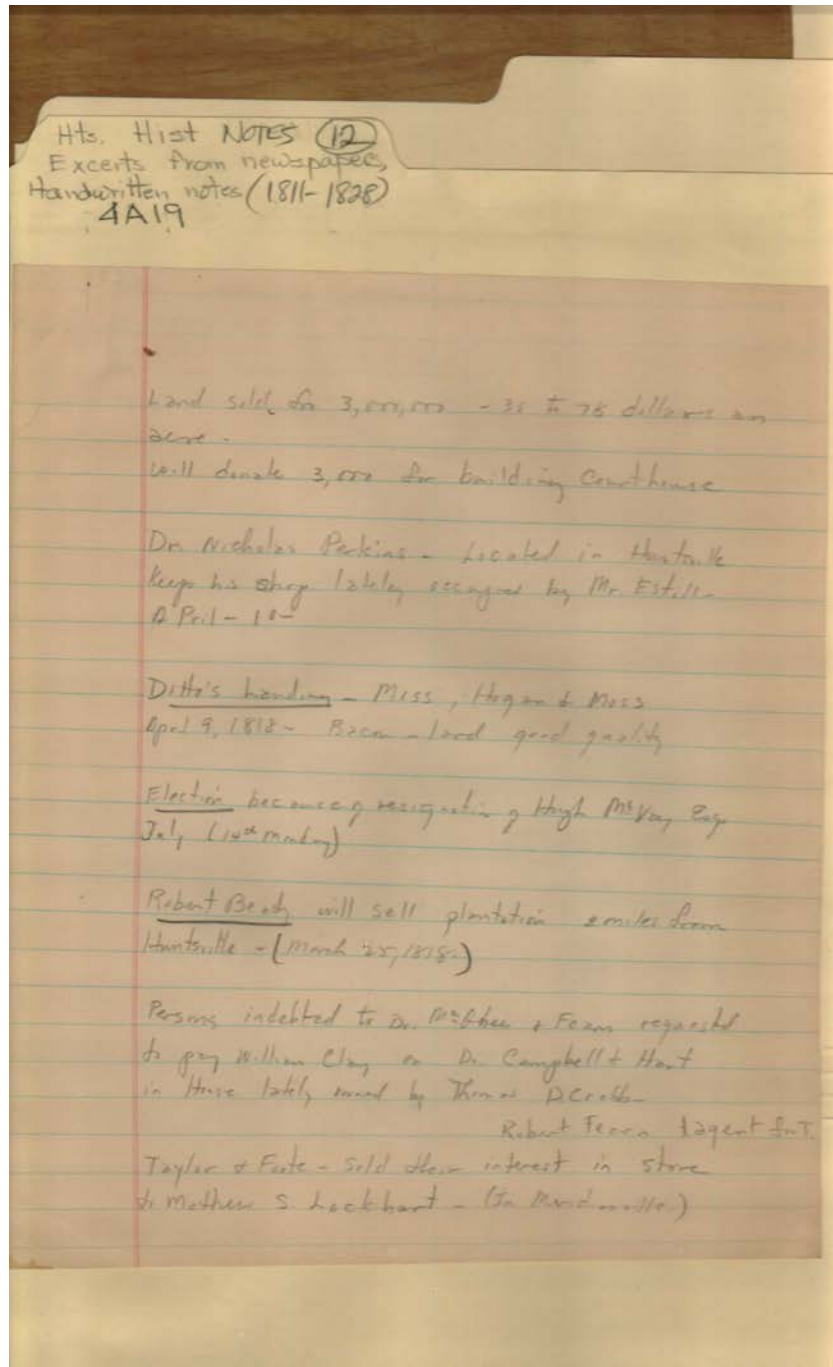 Hts. Hist NOTES (12)
Excerts from newspapers,
Handwritten notes (1811-1828)
4A19
Land sold for 3,000,000 - 35 to 75 dollars an
acre.
Will donate 3,000 for building Courthouse
Dr. Nicholas Perkins - Located in Huntsville
Keeps his shop lately occupied by Mr. Estill-
April - 10-
Ditto's Landing - Miss, Hogan & Moss
April 9, 1818 - Bacon - lard good quality
Election because of resignation of Hugh McVay Esq.
July (1st monday)
Robert Beaty will sell plantation 2 miles from
Huntsville - (March 25, 1818.)
Persons indebted to Dr. & Fearn requested
to pay William Clay or Dr. Campbell & Hart
in House lately owned by Thomas D Crabb-
Robert Fearn agent for T.
Taylor & Foote - Sold their interest in store
to Mathew S. Lockhart - (In